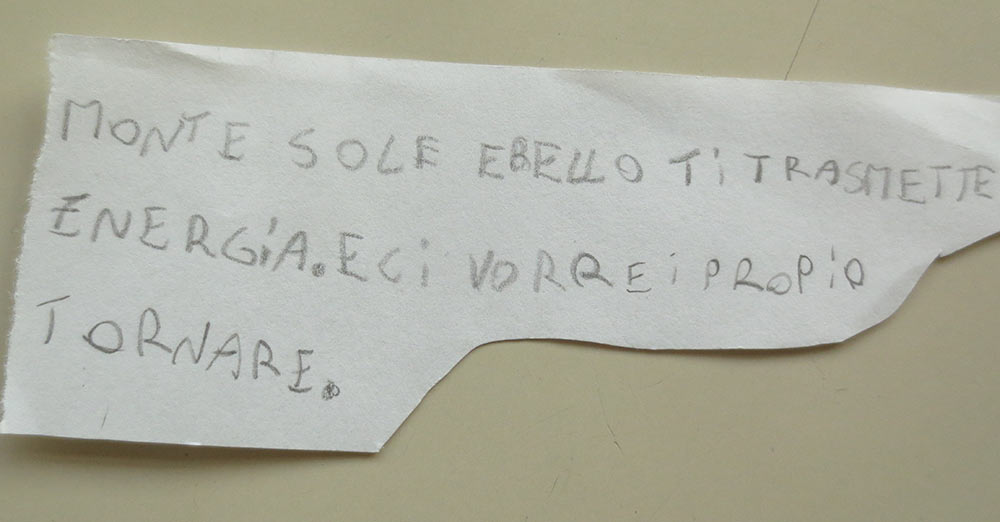 MONTE SOLE EBELLO Ti TRASMETTE
ENERGiA. E Ci VORREi PROPiO
TORNARE.